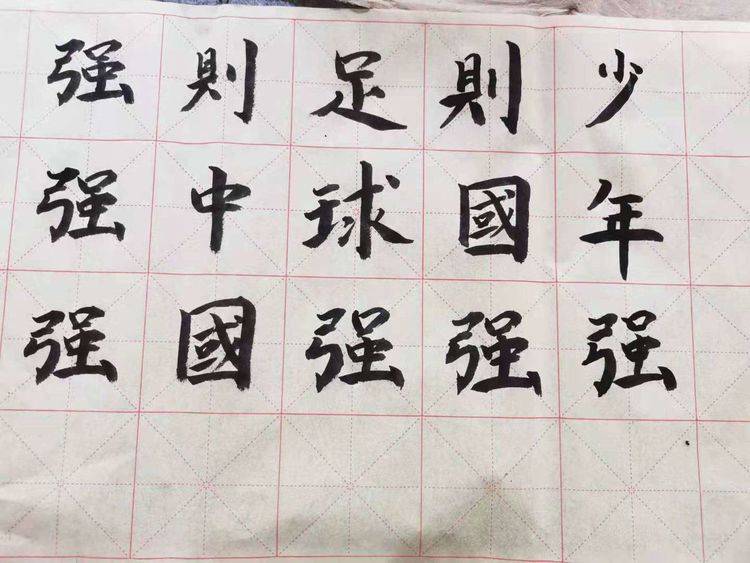 少年强
則國强
足球强
則中國
强强强